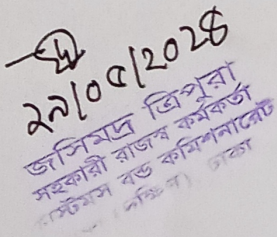 ২৯/০৫/২০২৪
জসিমদ্র ত্রিপুরা
সহকারী রাজস্ব কর্মকর্তা
কাস্টমস বন্ড কমিশনারেট
(দক্ষিণ) ঢাকা